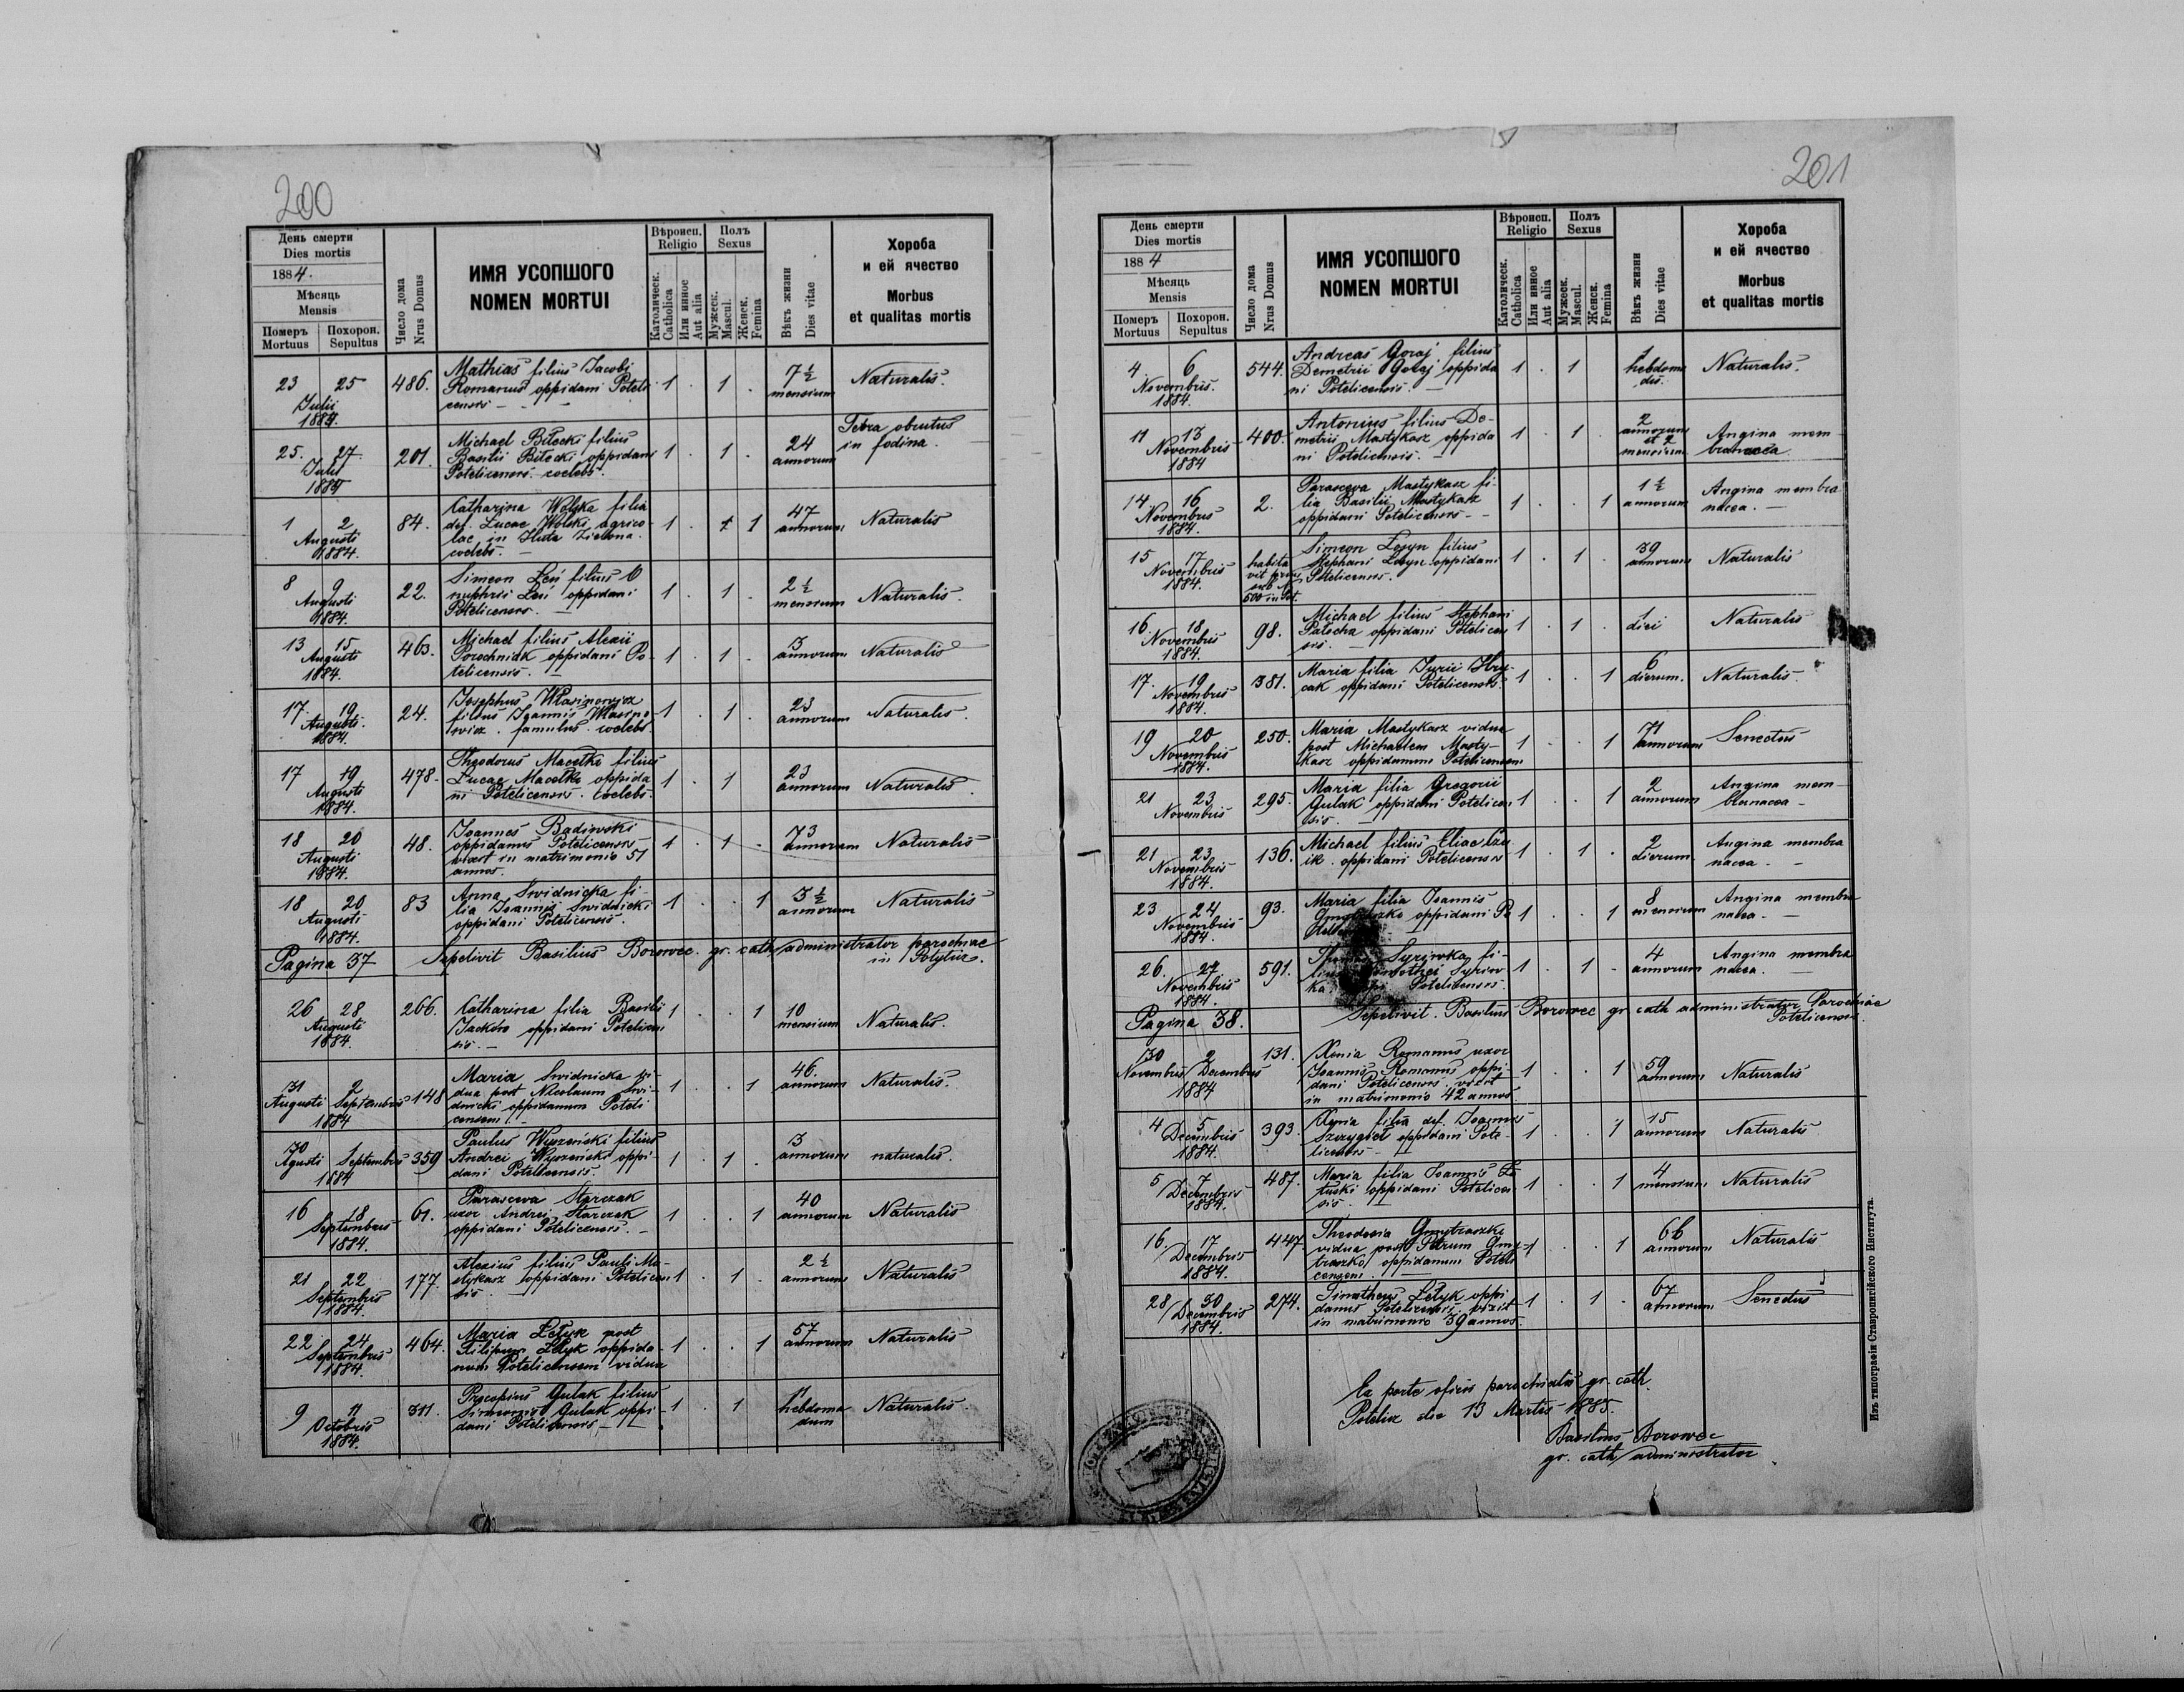 200
День смерти
Dies mortis
1884.
Мѣсяць
Mensis
Померъ
Mortuus
Похорон.
Sepultus
Число дома
Nrus Domus
ИМЯ УСОПШОГО
NOMEN MORTUI
Вѣроисп.
Religio
Католическ.
Catholica
Или инное
Aut alia
Полъ
Sexus
Мужеск.
Mascul.
Женск.
Femina
Вѣкъ жизни
Dies vitae
Хороба
и ей ячество
Morbus
et qualitas mortis
23 25 Julii 1884. 486. Mathias filius Jacobi 1 . 1 . 7½ mensium Naturalis.
Romanus oppidani Poteli-
censis
25. 27 Julii 1884 201. Michael Biłecki filius 1 . 1 . 24 annorum Tebra obrutus
Basilii Biłecki oppidani in fodina.
Potelicensis. coelebs.
1 2 Augusti 1884. 84. Catharina Wolska filia 1 . 1 47 annorum Naturalis
def. Lucae Wolski agrico-
lae in Huta Zielona.
coelebs. —
8 9 Augusti 1884. 22. Simeon Leń filius O- 1 . 1 . 2½ mensium Naturalis.
nuphrii Leń oppidani
Potelicensis. —
13 15 Augusti 1884. 463. Michael filius Alexii 1 . 1 . 3 annorum Naturalis
Porochniak oppidani Po-
telicensis. —
17. 19 Augusti. 1884. 24. Josephus 1 . 1 . 23 annorum Naturalis.
filius Joannis
famulus. coelebs.
17 19 Augusti 1884. 478. Theodorus Macełko filius 1 . 1 23 annorum Naturalis.
Lucae Macełko oppida-
ni Potelicensis. coelebs.
18 20 Augusti 1884. 48. Joannes Badiwski 1 . 1 . 73 annorum Naturalis
oppidanus Potelicensis
vixit in matrimonio 51
annos.
18 20 Augusti 1884. 83 Anna Swidnicka fi- 1 . . 1 3½ annorum Naturalis
lia Joannis Swidnicki
oppidani Potelicensis.
Pagina 37 Sepelivit Basilius Borowec. gr. cath. administrator parochiae
in Potylicz.
26 28 Augusti 1884. 266. Catharina filia Basilii 1 . . 1 10 mensium Naturalis.
Jackow oppidani Potelicen
sis. —
31 2 Augusti Septembris 1884 148 Maria Swidnicka vi- 1 . . 1 46. annorum Naturalis.
dua post Nicolaum Swi-
dnicki oppidanum Poteli
censem. —
30 Agusti Septembris 1884 359 Paulus filius 1 . 1 . 3 annorum naturalis.
Andrei oppi-
dani Potelicensis.
16 18 Septembris 1884. 61. Parasceva Starczak 1 . . 1 40 annorum Naturalis
uxor Andrei Starczak
oppidani Potelicensis. —
21 22 Septembris 1884. 177. Alexius filius Pauli Ma- 1 . 1 . 2½ annorum Naturalis
stykasz oppidani Potelicen
sis. —
22 24 Septembris 1884. 464. Maria Łetyk post 1 . . 1 57 annorum Naturalis
Filipum Łetyk oppida-
num Potelicensem vidua
9 11 Octobris 1884. 311. Procopius Gulak filius 1 . 1 11 hebdoma dum Naturalis.
Simeonis Gulak oppi-
dani Potelicensis —
201
День смерти
Dies mortis
1884
Мѣсяць
Mensis
Померъ
Mortuus
Похорон.
Sepultus
Число дома
Nrus Domus
ИМЯ УСОПШОГО
NOMEN MORTUI
Вѣроисп.
Religio
Католическ.
Catholica
Или инное
Aut alia
Полъ
Sexus
Мужеск.
Mascul.
Женск.
Femina
Вѣкъ жизни
Dies vitae
Хороба
и ей ячество
Morbus
et qualitas mortis
4. 6 Novembris. 1884. 544. Andreas Goraj filius 1 . 1 1 hebdoma dis. Naturalis.
Demetrii Goraj oppida
ni Potelicensis. —
11 13 Novembris 1884 400. Antonius filius De- 1 . 1 . 2 annorum et 2 mensium Angina mem-
metrii Mastykasz oppida branacea
ni Potelicensis. —
14. 16 Novembris 1884. 2. Parasceva Mastykasz fi- 1 . . 1 1½ annorum Angina membra
lia Basilii Mastykasz nacea. —
oppidani Potelicensis —
15 17 Novembris 1884. habita vit sub N. 500 in Pot. Simeon filius 1 . 1 . 39 annorum Naturalis
Stephani oppidani
Potelicensis.
16. 18 Novembris 1884. 98. Michael filius Stephani 1 . 1 . 1 diei Naturalis
Patocha oppidani Potelicen
sis. —
17. 19 Novembris 1884. 381. Maria filia Jurii Hry- 1 . . 1 6 dierum. Naturalis.
cak oppidani Potelicensis.
19 20 Novembris 1884. 250. Maria Mastykasz vidua 1 . . 1 71 annorum Senectus
post Michaelem Masty-
kasz oppidanum Potelicensem
21 23 Novembris 295. Maria filia Gregorii 1 . . 1 2 annorum Angina mem-
Gulak oppidani Potelicen blanacea —
sis. —
21 23 Novembris 1884. 136. Michael filius Eliae 1 . 1 . 2 dierum Angina membra
oppidani Potelicensis nacea. —
23 24 Novembris 1884. 93. Maria filia Joannis 1 . . 1 8 mensium Angina membra
oppidani Po nacea. —
26. 27 Novembris 1884. 591. Syriwka fi- 1 . 1 . 4 annorum Angina membra
Syriw nacea. —
ka Potelicensis.
Pagina 38. Sepelivit. Basilius Borowec gr. cath administrator Parochiae
Potelicensis.
30 2 Novembris Decembris 1884 131. Xenia Romanus uxor 1 . . 1 59 annorum Naturalis
Joannis Romanus oppi-
dani Potelicensis. vixit
in matrimonio 42 annos.
4 5 Decembris 1884. 393. Xenia filia def. Joannis 1 . . 1 15 annorum Naturalis
oppidani Pote-
licensis —
5 7 Decembris 1884. 487. Maria filia Joannis 1 . . 1 4 mensium Naturalis
oppidani Potelicen
sis. —
16. 17 Decembris 1884. 447 Theodosia Gmytraszko 1 . . 1 66 annorum Naturalis
vidua post Petrum Gmy-
traszko oppidanum Poteli
censem. —
28 30 Decembris 1884. 274. Timotheus Łetyk oppi 1 . 1 . 67 annorum Senectus
danus Potelicensis, vixit
in matrimonio 39 annos.
Ex parte oficii parochialis gr. cath.
Potelicz die 13 Martis 1885.
Basilius Borowec
gr. cath. administrator
Изъ типографіи Ставропигійского Института.